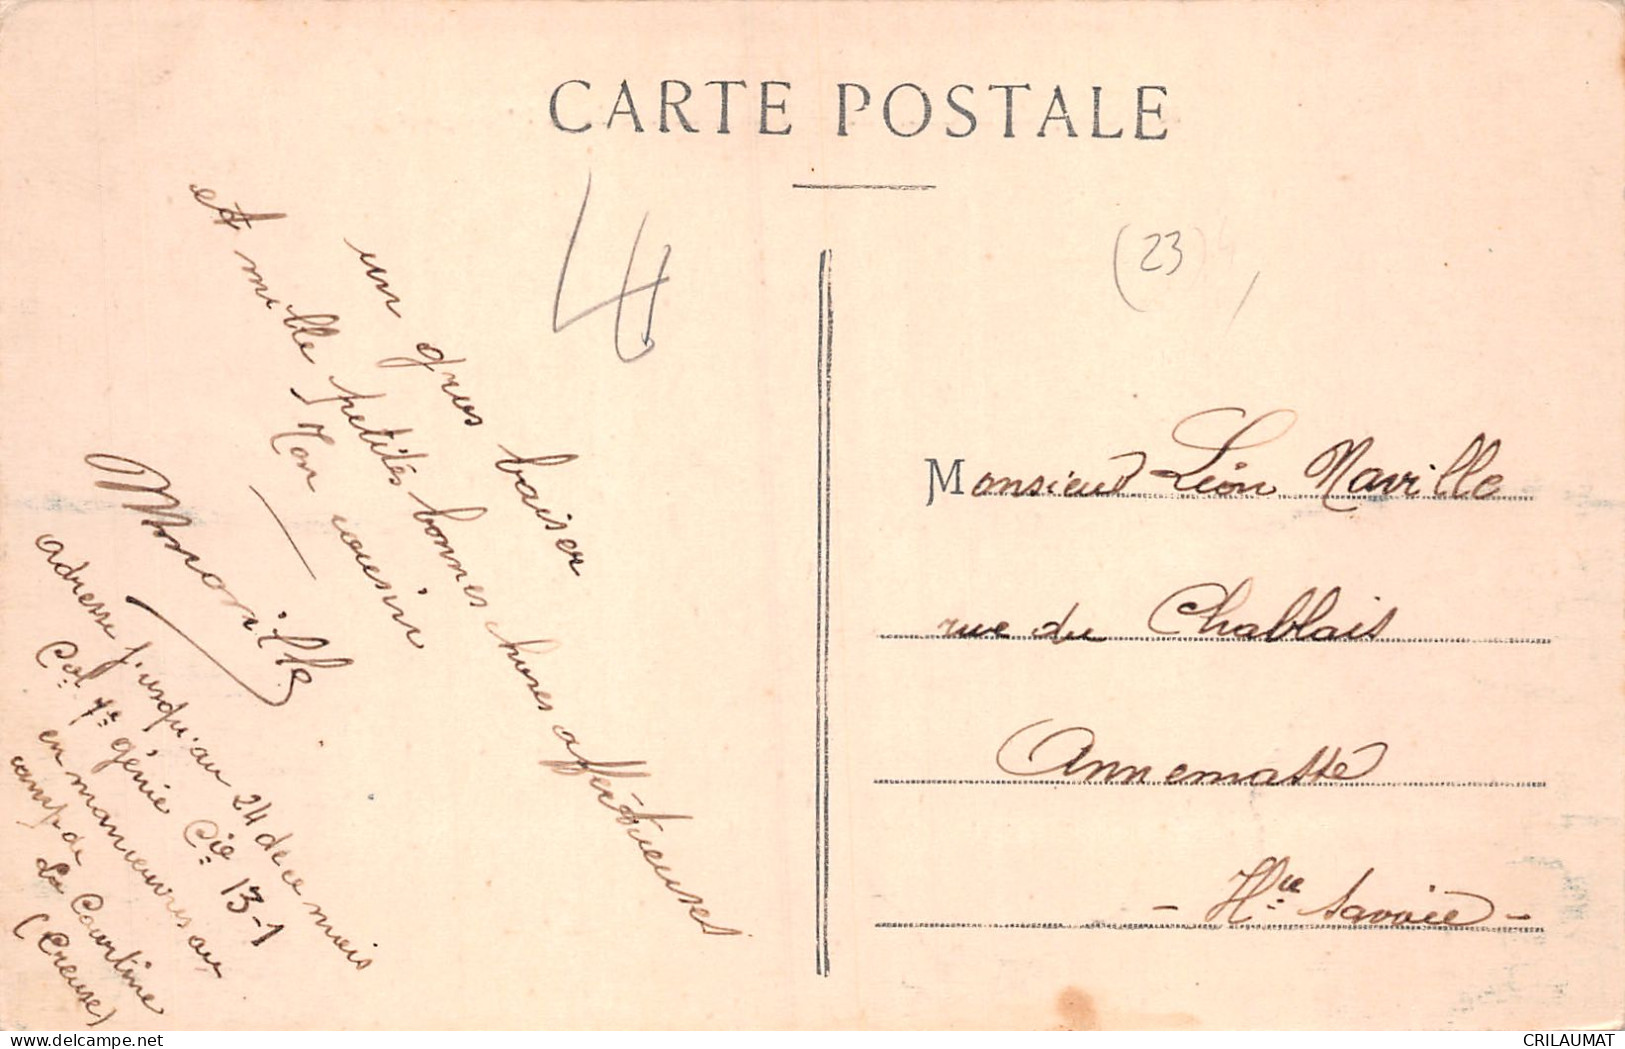 CARTE POSTALE
un gros baiser
et mille petites bonnes choses affectueuses
Ton cousin
adresse jusqu'au 24 de ce mois
Cal 4e génie Cie 13-1
en manœuvres au
camp de
La Courtine
(Creuse)
(23)
Monsieur Léon Naville
rue du Chablais
Annemasse
- Hte Savoie -
CRILAUMAT